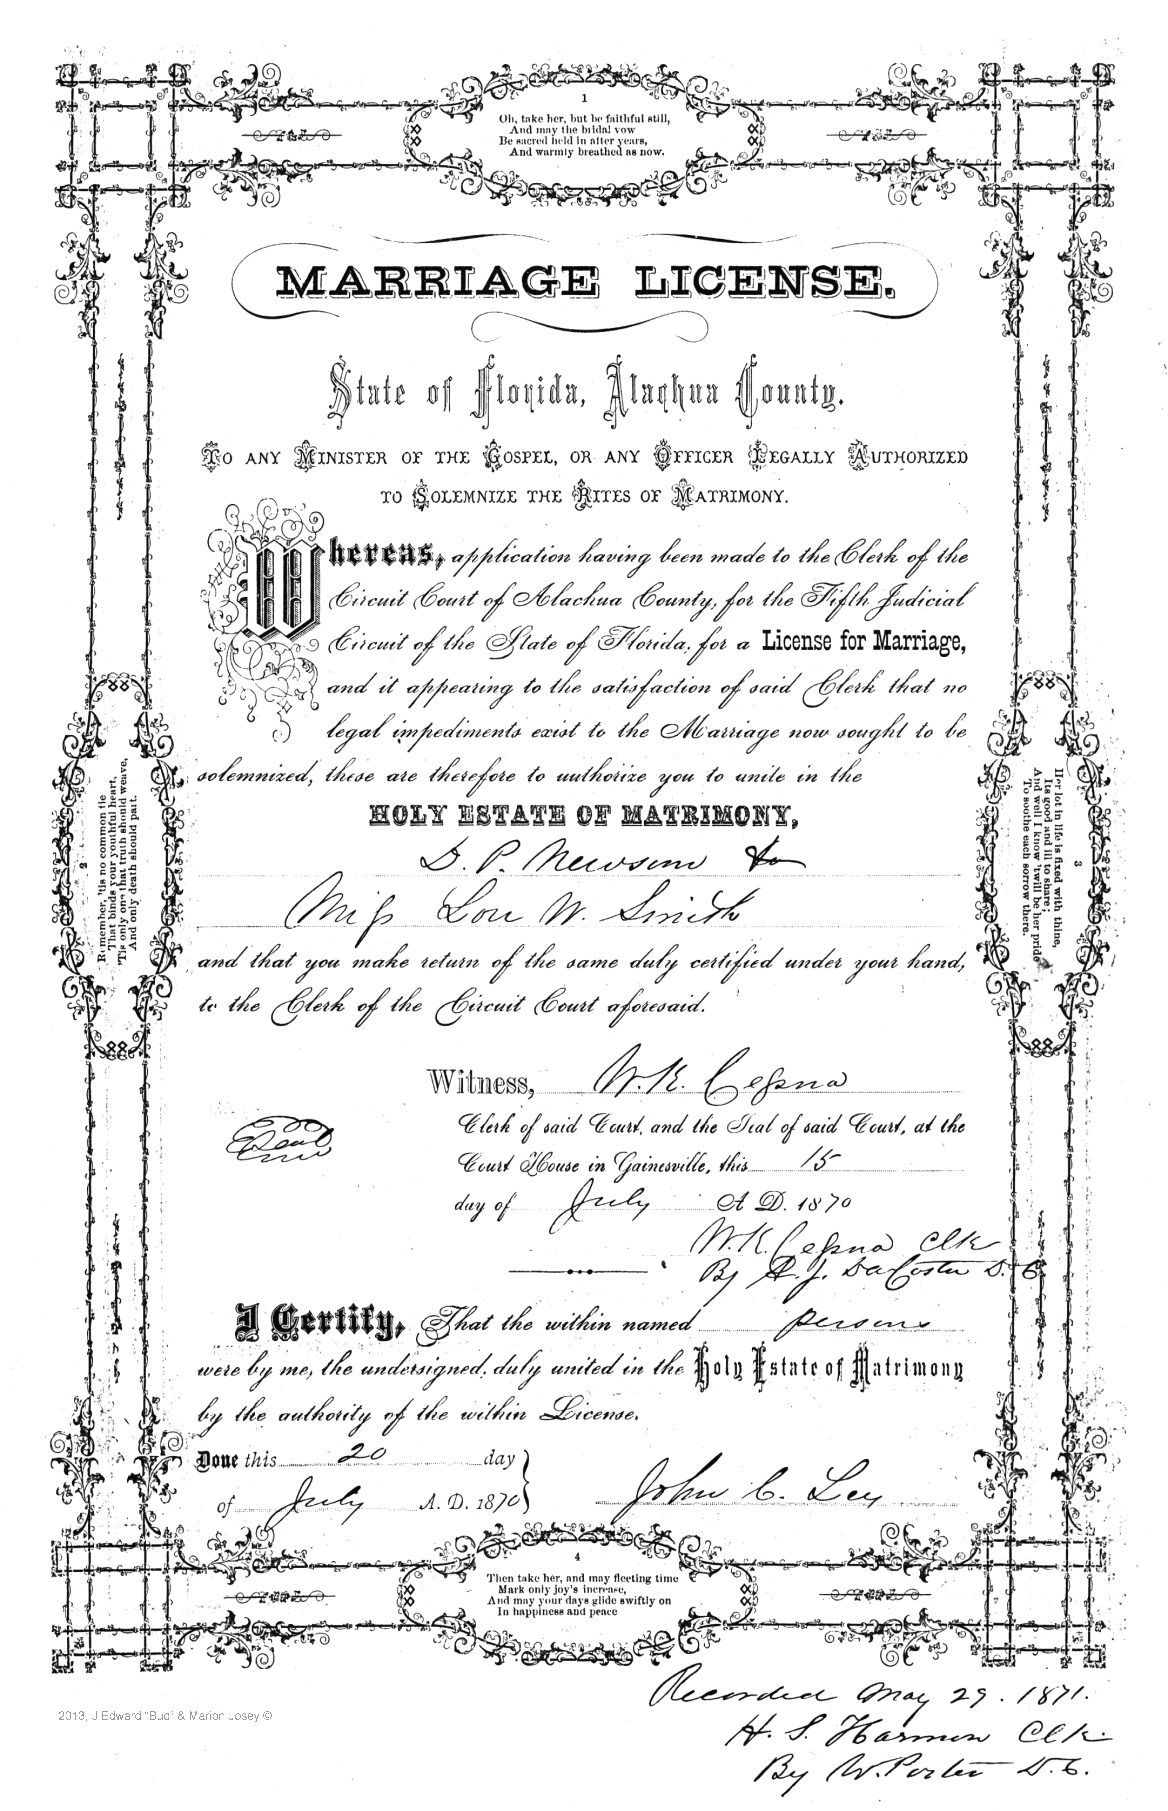 1
Oh, take her, but be faithful still,
And may the bridal vow
Be sacred held in after years,
And warmly breathed as now.
MARRIAGE LICENSE.
State of Florida, Alachua County.
TO ANY MINISTER OF THE GOSPEL, OR ANY OFFICER LEGALLY AUTHORIZED
TO SOLEMNIZE THE RITES OF MATRIMONY.
Whereas, application having been made to the Clerk of the
Circuit Court of Alachua County, for the Fifth Judicial
Circuit of the State of Florida, for a License for Marriage,
and it appearing to the satisfaction of said Clerk that no
legal impediments exist to the Marriage now sought to be
solemnized, these are therefore to authorize you to unite in the
HOLY ESTATE OF MATRIMONY,
D. P. Newsom to
Miss Lou W. Smith
and that you make return of the same duly certified under your hand,
to the Clerk of the Circuit Court aforesaid.
2
Remember, 'tis no common tie
That binds your youthful heart,
'Tis only one that truth should weave,
And only death should part.
3
Her lot in life is fixed with thine,
Its good and ill to share;
And well I know 'twill be her pride
To soothe each sorrow there.
Witness, W. K. Cessna
Seal
Clerk of said Court, and the Seal of said Court, at the
Court House in Gainesville, this 15
day of July A D. 1870
W. K. Cessna Clk
By A. J. DaCosta D. C.
I Certify, That the within named persons
were by me, the undersigned, duly united in the Holy Estate of Matrimony
by the authority of the within License.
Done this 20 day
of July A. D. 1870
John C. Ley
4
Then take her, and may fleeting time
Mark only joy's increase,
And may your days glide swiftly on
In happiness and peace
Recorded May 29. 1871.
H. S. Harmon Clk.
By W. Porter D. C.
2013, J Edward "Bud" & Marion Josey ©